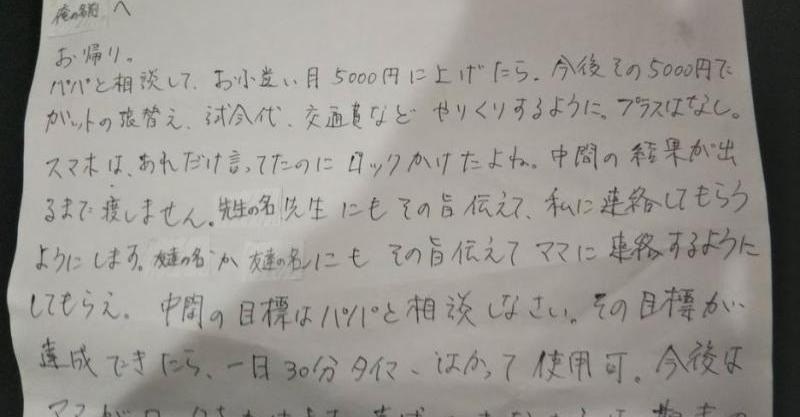 俺の名前 へ
お帰り。
パパと相談して、お小遣い月5000円に上げたら。今後その5000円で
ガットの張替え、試合代、交通費など やりくりするように。プラスはなし。
スマホは、あれだけ言ってたのに ロックかけたよね。中間の結果が出
るまで渡しません。先生の名 先生 にも その旨 伝えて、私に連絡してもらう
ようにします。友達の名 か 友達の名 にも その旨伝えて ママに 連絡するように
してもらえ。中間の目標はパパと相談しなさい。その目標が
達成できたら、一日30分タイマーはかって 使用可。今後は
ママが